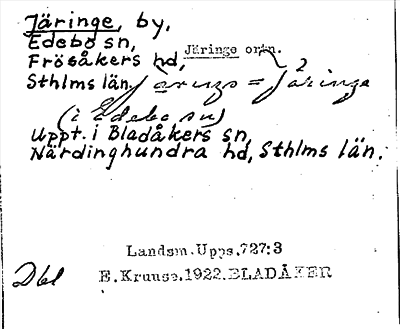 Järinge, by.
Edebo sn,
Frösåkers hd,
Järinge ortn.
Sthlms län. = Järinge
(i Edebo sn)
Uppt. i Bladåkers sn,
Närdinghundra hd, Sthlms län.
Landsm. Upps. 727:3
Dbl E. Kruuse. 1922. BLADÅKER